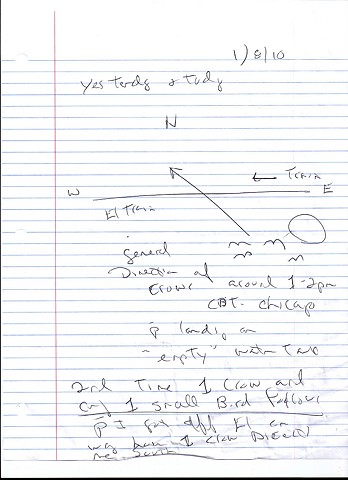 1) 8/10
Yesterdy & Tody
N
← Train
W E
El Train
general
Direction of
crows around 1-2pm
CBT. Chicago
p landig on
"empty" with Tree
2nd Time 1 Crow and
only 1 small Bird Follows
p I got off El on
way home 1 crow Directly